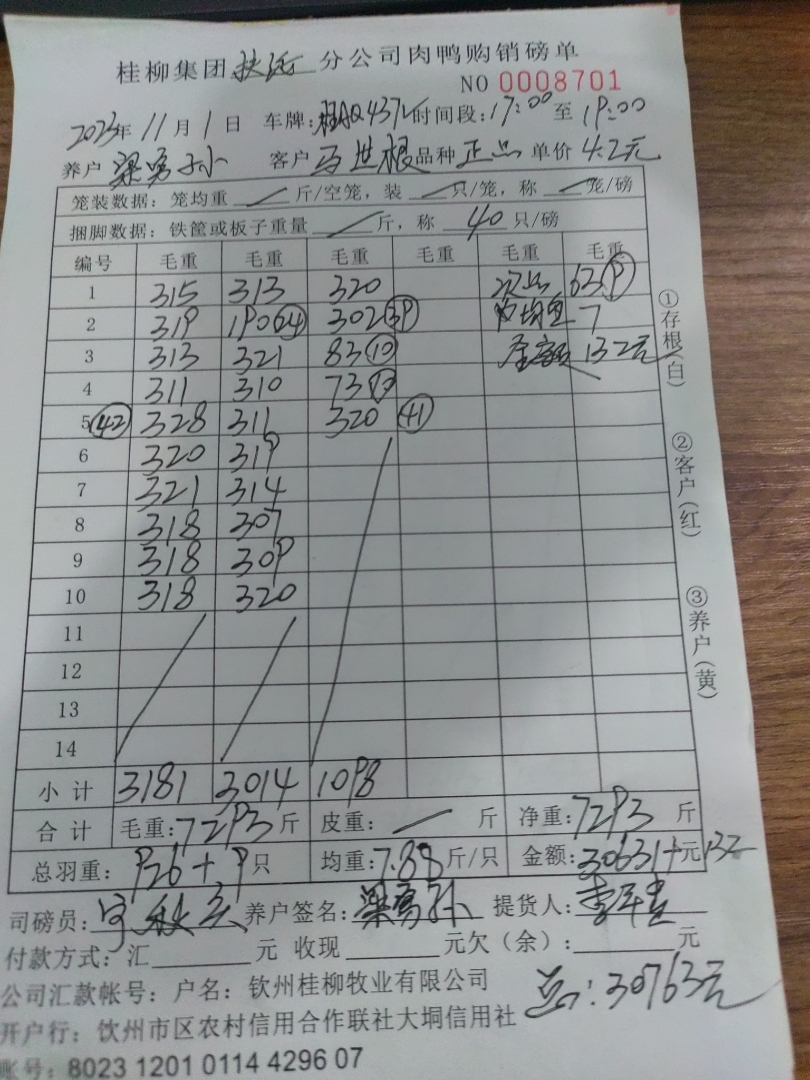 桂柳集团扶绥分公司肉鸭购销磅单
NO 0008701
2023年11月1日 车牌: 时间段:17:00至19:00
养户 梁勇孙 客户 马世根 品种 正品 单价 4.2元
笼装数据: 笼均重 / 斤/空笼, 装 / 只/笼, 称 / 笼/磅
捆脚数据: 铁筐或板子重量 / 斤, 称 40 只/磅
编号 毛重 毛重 毛重 毛重 毛重 毛重
1 315 313 320 次品 63 9
2 319 190 24 302 39 均重 7
3 313 321 83 10 金额 132元
4 311 310 73
5 42 328 311 320 41
6 320 319
7 321 314
8 318 307
9 318 309
10 318 320
11
12
13
14
小计 3181 3014 1098
合计 毛重:7293斤 皮重: / 斤 净重:7293斤
总羽重: 926+9只 均重:7.88斤/只 金额:30631+元132
司磅员: 养户签名:梁勇孙 提货人:
付款方式: 汇 元 收现 元欠(余): 元
公司汇款帐号: 户名: 钦州桂柳牧业有限公司
总:30763元
开户行: 钦州市区农村信用合作联社大垌信用社
账号: 8023 1201 0114 4296 07
①存根(白)
②客户(红)
③养户(黄)